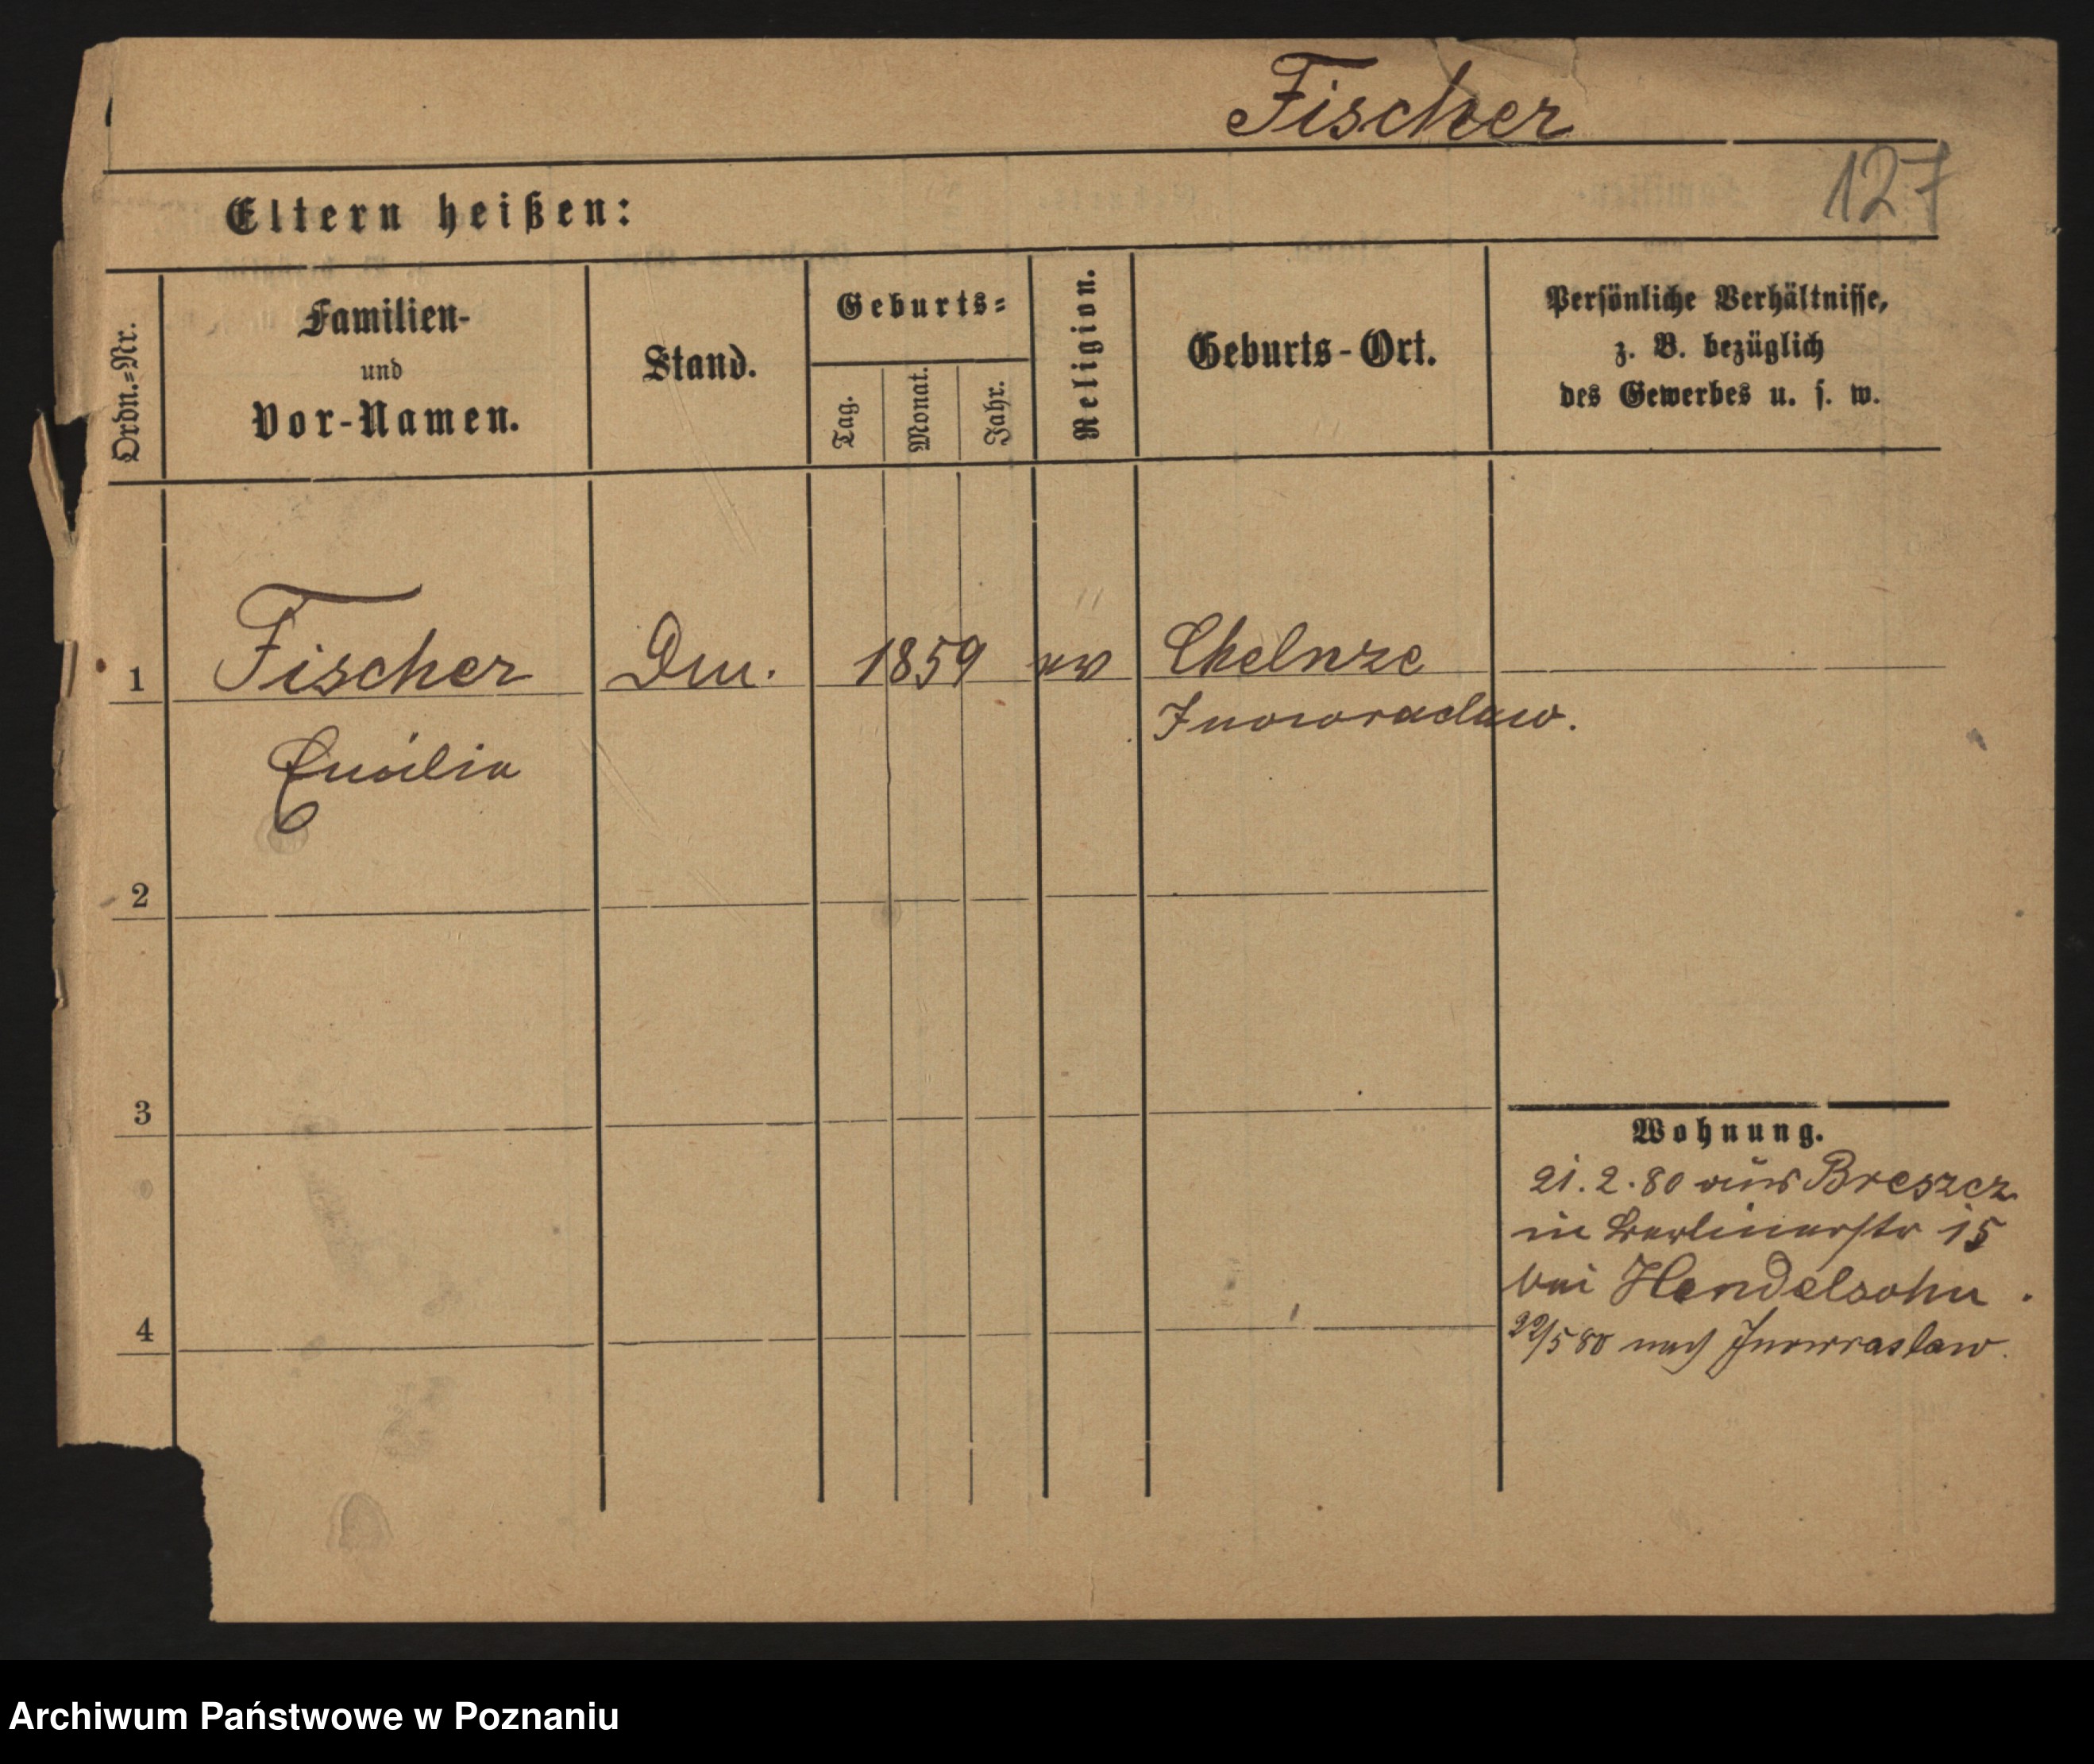 Fischer
127
Eltern heißen:
Ordn.=Nr.
Familien-
und
Vor-Namen.
Stand.
Geburts=
Tag.
Monat.
Jahr.
Religion.
Geburts-Ort.
Persönliche Verhältnisse,
z. B. bezüglich
des Gewerbes u. s. w.
1 Fischer 1859 Chelnze
Inowraclaw.
Emilie
2
3
4
Wohnung.
21. 2. 80 aus Breszcz
in Berlinerstr 15
bei Hendelsohn.
22/5 80 nach Inowraslaw.
Archiwum Państwowe w Poznaniu